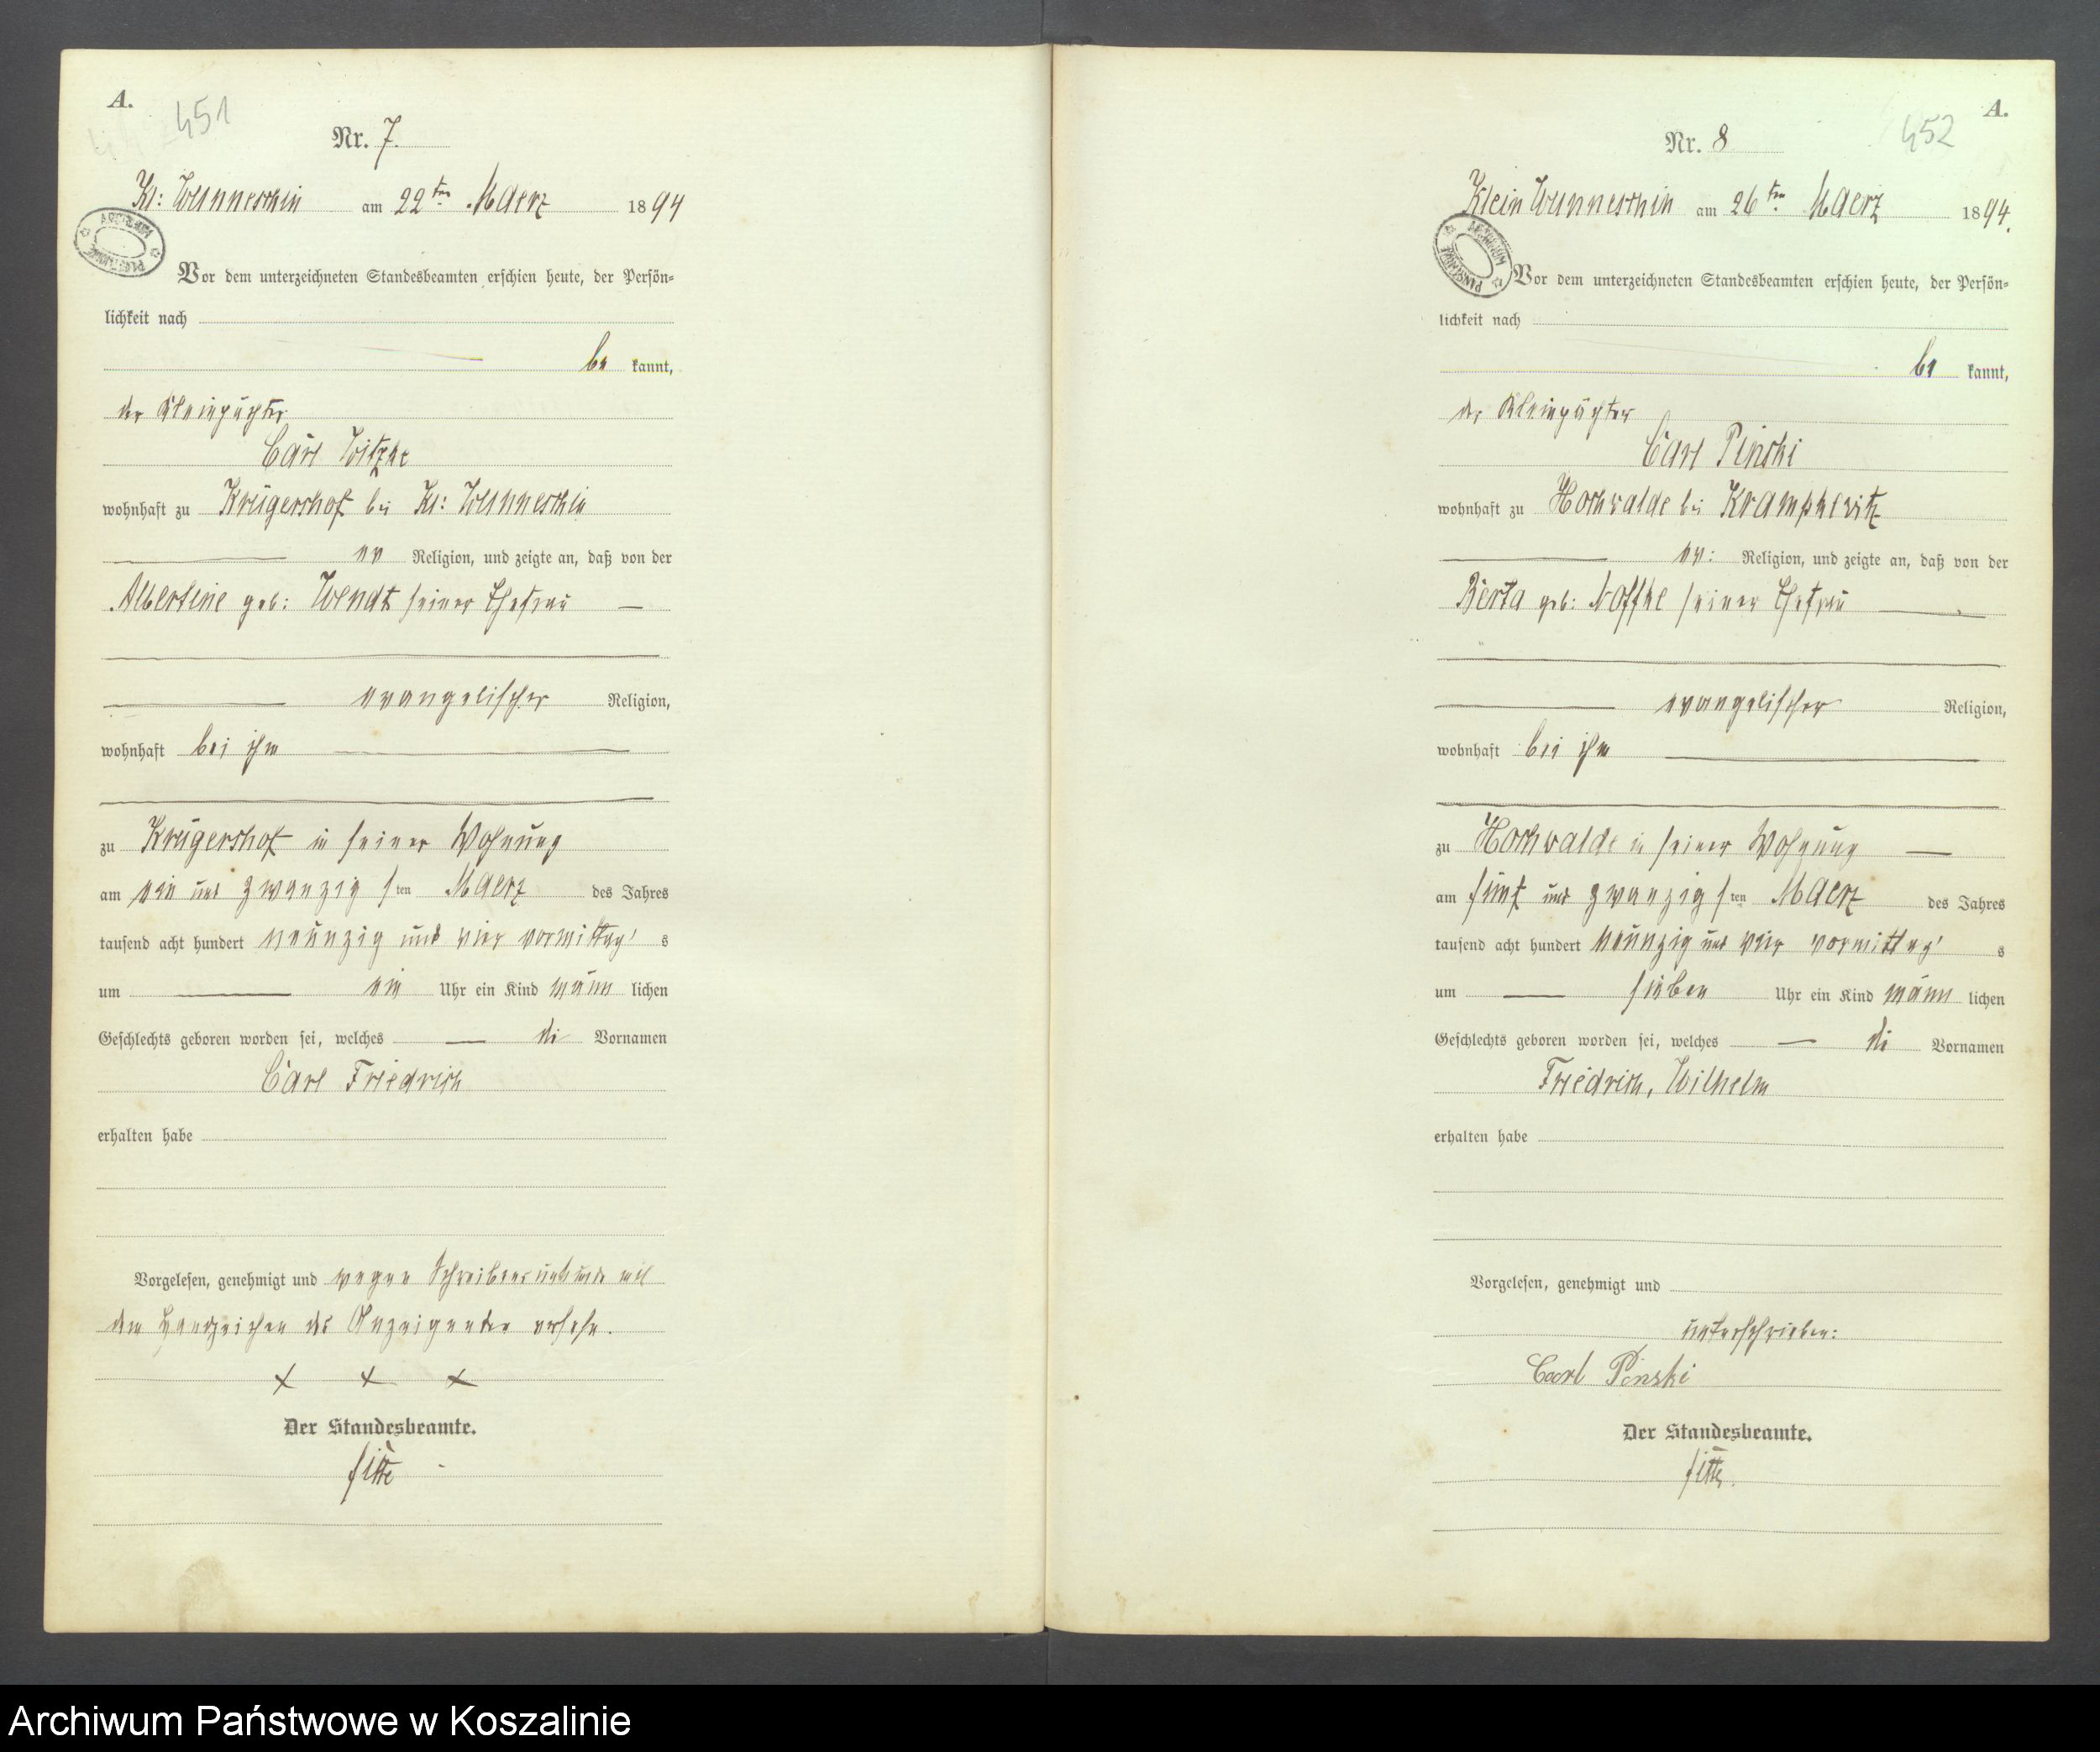 A.
451
Nr. 7.
Kl: Wunneschin am 22ten Maerz 1894
Vor dem unterzeichneten Standesbeamten erschien heute, der Persön-
lichkeit nach
be kannt,
der Kleinpächter
Carl Witzke
wohnhaft zu Krügershof bei Kl: Wunneschin
ev Religion, und zeigte an, daß von der
Albertine geb: Wendt seiner Ehefrau
evangelischer Religion,
wohnhaft bei ihm
zu Krügershof in seiner Wohnung
am ein und zwanzigsten Maerz des Jahres
tausend acht hundert neunzig und vier vormittags
um ein Uhr ein Kind männlichen
Geschlechts geboren worden sei, welches die Vornamen
Carl Friedrich
erhalten habe
Vorgelesen, genehmigt und wegen Schreibensunkunde mit
dem Handzeichen des Anzeigenden versehn.
x x x
Der Standesbeamte.
A.
452
Nr. 8
Klein Wunneschin am 26ten Maerz 1894.
Vor dem unterzeichneten Standesbeamten erschien heute, der Persön-
lichkeit nach
be kannt,
der Kleinpächter
Carl Pinski
wohnhaft zu Hochwalde bei Krampkewitz
ev: Religion, und zeigte an, daß von der
Berta geb: Noffke seiner Ehefrau
evangelischer Religion,
wohnhaft bei ihm
zu Hochwalde in seiner Wohnung
am fünf und zwanzigsten Maerz des Jahres
tausend acht hundert neunzig und vier vormittags
um sieben Uhr ein Kind männlichen
Geschlechts geboren worden sei, welches die Vornamen
Friedrich, Wilhelm
erhalten habe
Vorgelesen, genehmigt und
unterschrieben:
Carl Pinski
Der Standesbeamte.
Archiwum Państwowe w Koszalinie